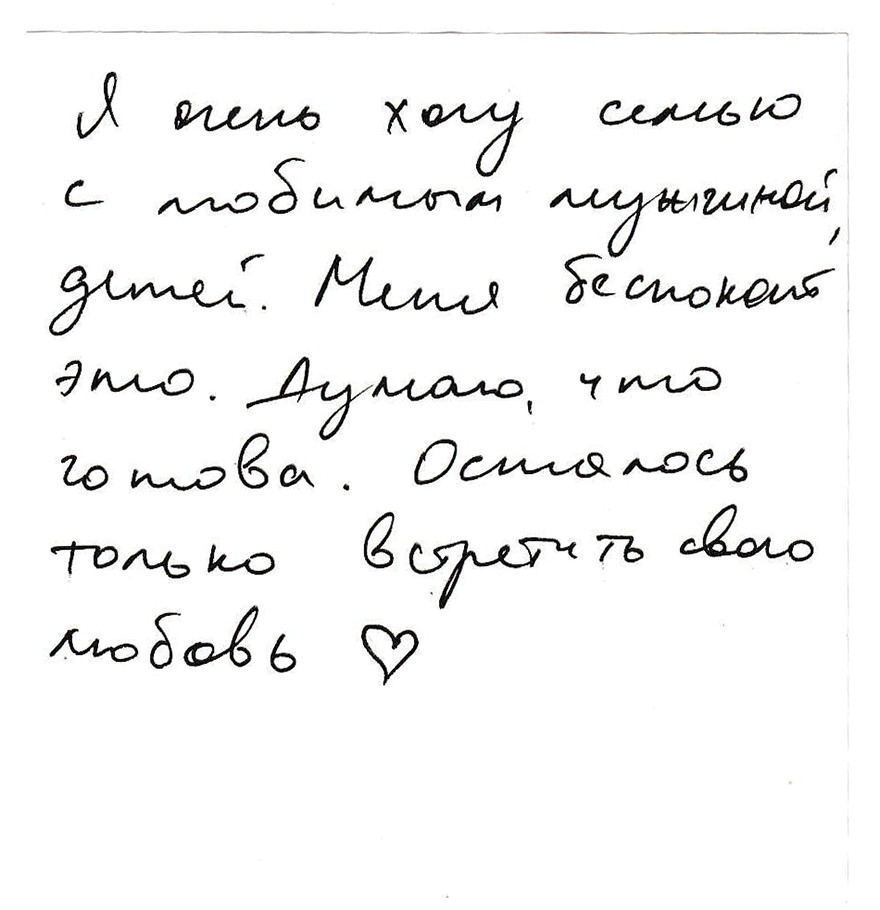 Я очень хочу семью
с любимым мужчиной,
детей. Меня беспокоит
это. Думаю, что
готова. Осталось
только встретить свою
любовь ♡